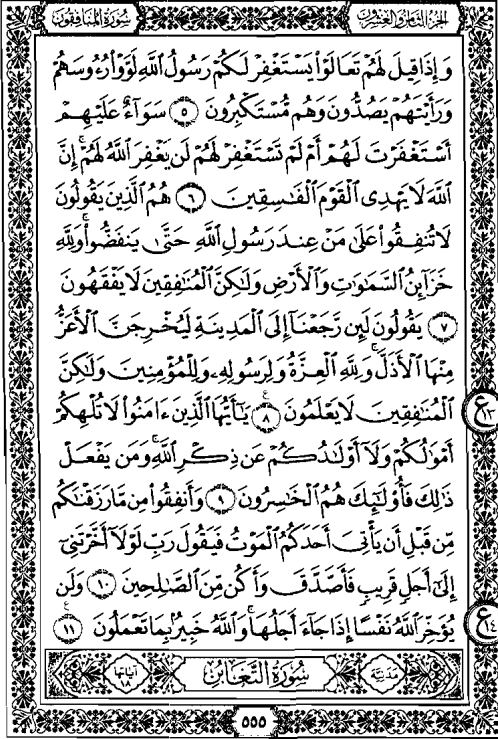 الجزء الثامن والعشرون
سورة المنافقون
وَإِذَا قِيلَ لَهُمْ تَعَالَوْا۟ يَسْتَغْفِرْ لَكُمْ رَسُولُ ٱللَّهِ لَوَّوْا۟ رُءُوسَهُمْ
وَرَأَيْتَهُمْ يَصُدُّونَ وَهُم مُّسْتَكْبِرُونَ ٥ سَوَآءٌ عَلَيْهِمْ
أَسْتَغْفَرْتَ لَهُمْ أَمْ لَمْ تَسْتَغْفِرْ لَهُمْ لَن يَغْفِرَ ٱللَّهُ لَهُمْ ۚ إِنَّ
ٱللَّهَ لَا يَهْدِى ٱلْقَوْمَ ٱلْفَٰسِقِينَ ٦ هُمُ ٱلَّذِينَ يَقُولُونَ
لَا تُنفِقُوا۟ عَلَىٰ مَنْ عِندَ رَسُولِ ٱللَّهِ حَتَّىٰ يَنفَضُّوا۟ ۗ وَلِلَّهِ
خَزَآئِنُ ٱلسَّمَٰوَٰتِ وَٱلْأَرْضِ وَلَٰكِنَّ ٱلْمُنَٰفِقِينَ لَا يَفْقَهُونَ
٧ يَقُولُونَ لَئِن رَّجَعْنَآ إِلَى ٱلْمَدِينَةِ لَيُخْرِجَنَّ ٱلْأَعَزُّ
مِنْهَا ٱلْأَذَلَّ ۚ وَلِلَّهِ ٱلْعِزَّةُ وَلِرَسُولِهِۦ وَلِلْمُؤْمِنِينَ وَلَٰكِنَّ
ٱلْمُنَٰفِقِينَ لَا يَعْلَمُونَ ٨ يَٰٓأَيُّهَا ٱلَّذِينَ ءَامَنُوا۟ لَا تُلْهِكُمْ
أَمْوَٰلُكُمْ وَلَآ أَوْلَٰدُكُمْ عَن ذِكْرِ ٱللَّهِ ۚ وَمَن يَفْعَلْ
ذَٰلِكَ فَأُو۟لَٰٓئِكَ هُمُ ٱلْخَٰسِرُونَ ٩ وَأَنفِقُوا۟ مِن مَّا رَزَقْنَٰكُم
مِّن قَبْلِ أَن يَأْتِىَ أَحَدَكُمُ ٱلْمَوْتُ فَيَقُولَ رَبِّ لَوْلَآ أَخَّرْتَنِىٓ
إِلَىٰٓ أَجَلٍ قَرِيبٍ فَأَصَّدَّقَ وَأَكُن مِّنَ ٱلصَّٰلِحِينَ ١٠ وَلَن
يُؤَخِّرَ ٱللَّهُ نَفْسًا إِذَا جَآءَ أَجَلُهَا ۚ وَٱللَّهُ خَبِيرٌۢ بِمَا تَعْمَلُونَ ١١
ع ١٣
ع ١٤
مدنية
سورة التغابن
آياتها ١٨
٥٥٥